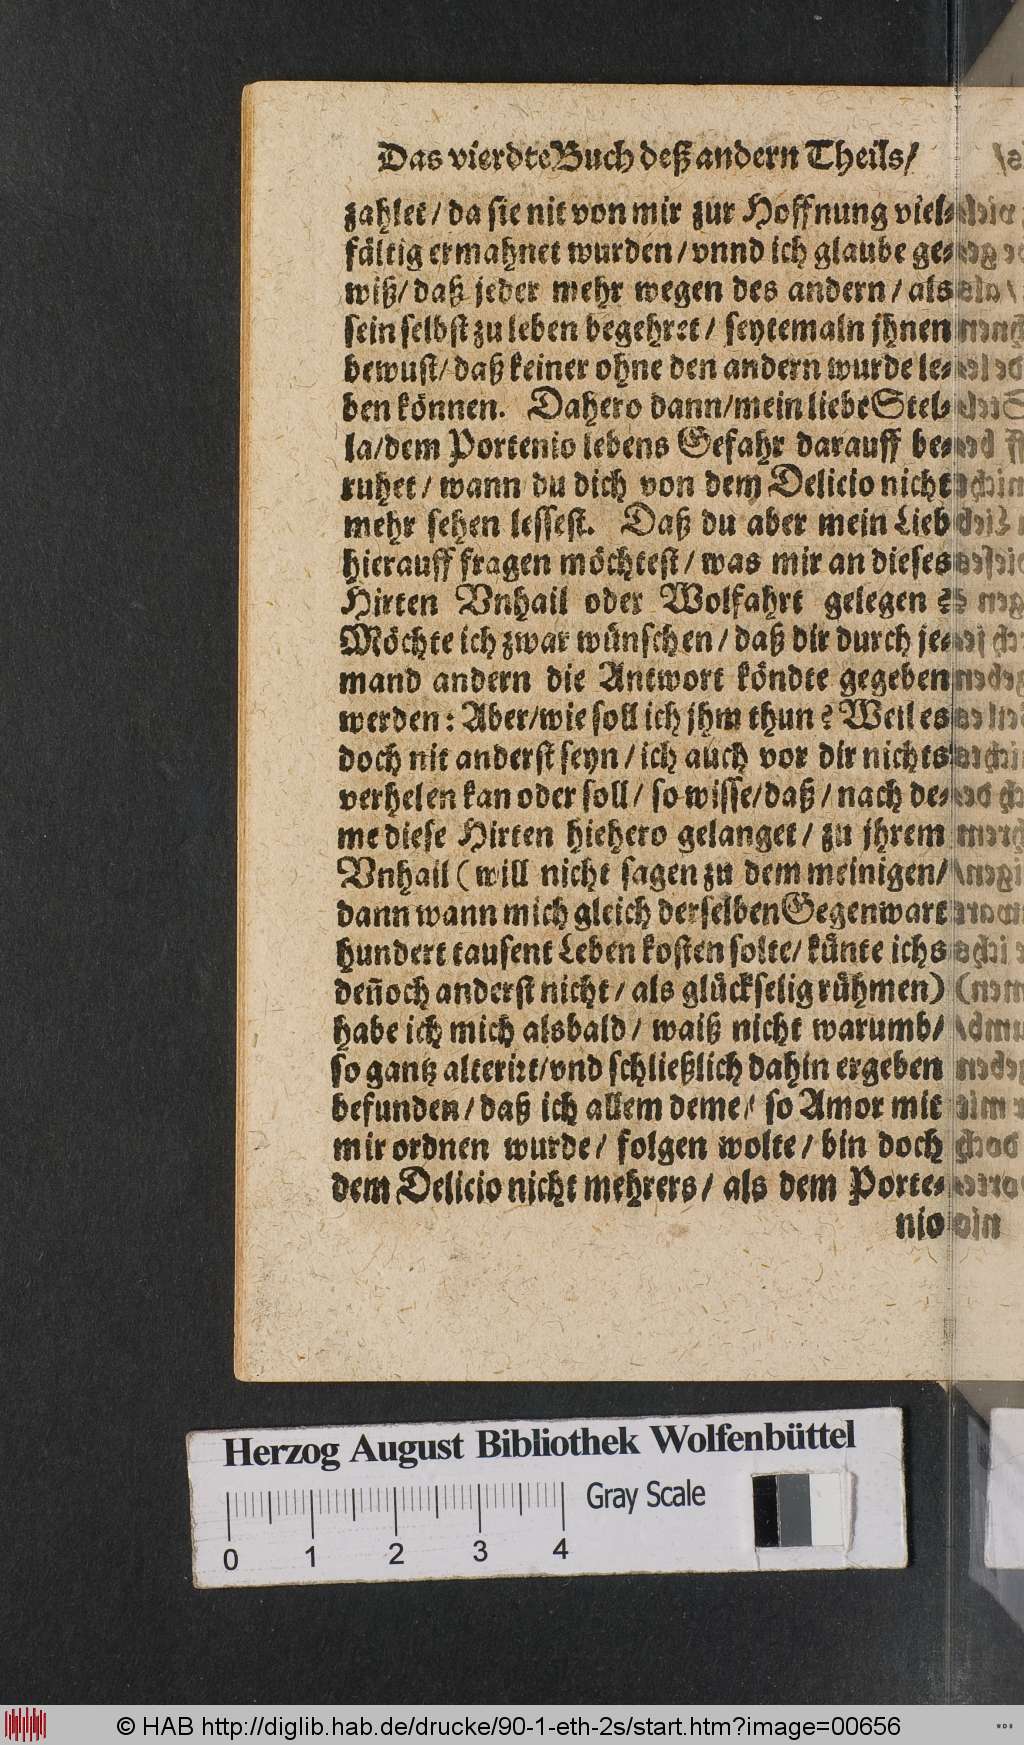 Das vierdte Buch deß andern Theils/
zahlet/ da sie nit von mir zur Hoffnung viel-
fältig ermahnet wurden/ vnnd ich glaube ge-
wiß/ daß jeder mehr wegen des andern/ als
sein selbst zu leben begehret/ seytemaln jhnen
bewust/ daß keiner ohne den andern wurde le-
ben können. Dahero dann/ mein liebe Stel-
la/ dem Portenio lebens Gefahr darauff be-
ruhet/ wann du dich von dem Delicio nicht
mehr sehen lessest. Daß du aber mein Lieb
hierauff fragen möchtest/ was mir an dieses
Hirten Vnhail oder Wolfahrt gelegen?
Möchte ich zwar wünschen/ daß dir durch je-
mand andern die Antwort köndte gegeben
werden: Aber/ wie soll ich jhm thun? Weil es
doch nit anderst seyn/ ich auch vor dir nichts
verhelen kan oder soll/ so wisse/ daß/ nach de-
me diese Hirten hiehero gelanget/ zu jhrem
Vnhail (will nicht sagen zu dem meinigen/
dann wann mich gleich derselben Gegenwart
hundert tausent Leben kosten solte/ künte ichs
deñoch anderst nicht/ als glückselig rühmen)
habe ich mich alsbald/ waiß nicht warumb/
so gantz alterirt/ vnd schließlich dahin ergeben
befunden/ daß ich allem deme/ so Amor mit
mir ordnen wurde/ folgen wolte/ bin doch
dem Delicio nicht mehrers/ als dem Porte-
nio
Herzog August Bibliothek Wolfenbüttel
Gray Scale
0 1 2 3 4
© HAB http://diglib.hab.de/drucke/90-1-eth-2s/start.htm?image=00656